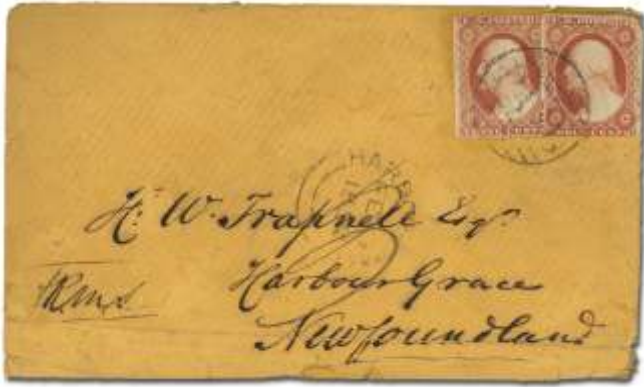 HARB
H. W. Trapnell Esqr.
Harbour Grace
Newfoundland